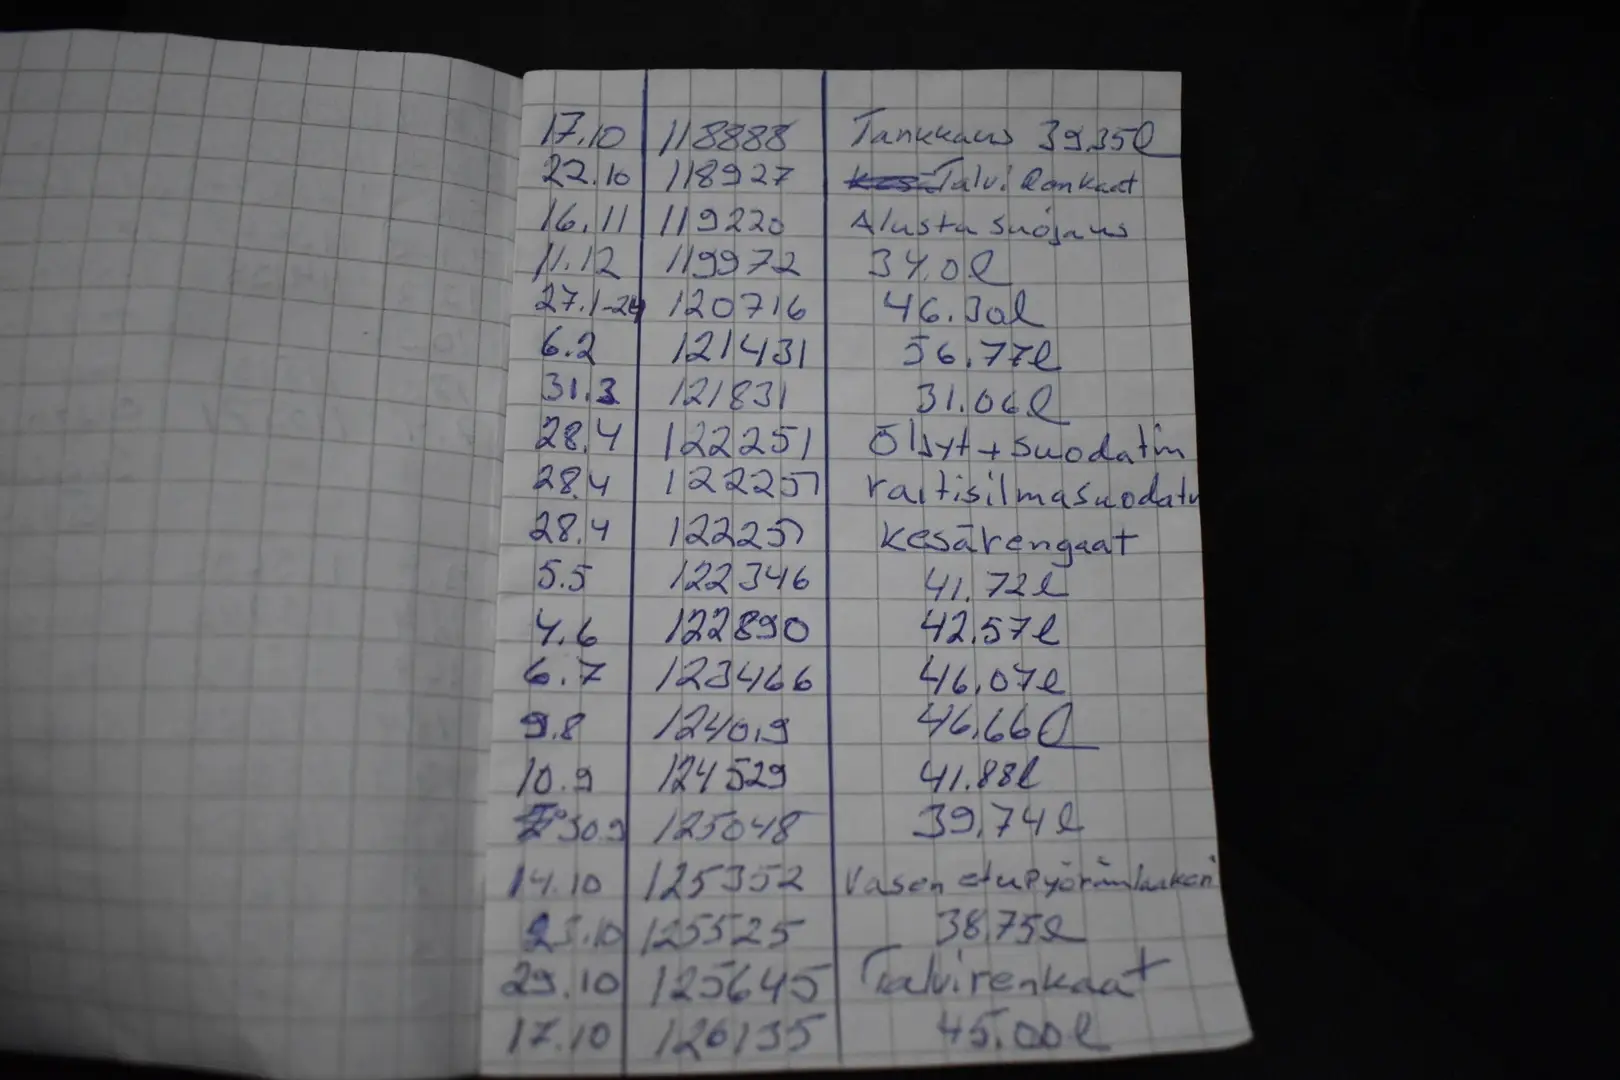 17.10 118888 Tankkaus 39.35l
22.10 118927 Talvi Renkaat
16.11 119220 Alusta suojaus
11.12 119972 34.0l
27.1-24 120716 46.30l
6.2 121431 56.77l
31.3 121831 31.06l
28.4 122251 Öljyt + suodatin
28.4 122251 raitisilmasuodatin
28.4 122251 Kesärengaat
5.5 122346 41.72l
4.6 122890 42.57l
6.7 123466 46.07l
9.8 124019 46.66l
10.9 124529 41.88l
30.9 125048 39.74l
14.10 125352 Vasen etupyöränlaakeri
125525 38.75l
29.10 125645 Talvirenkaat
17.10 126135 45.00l